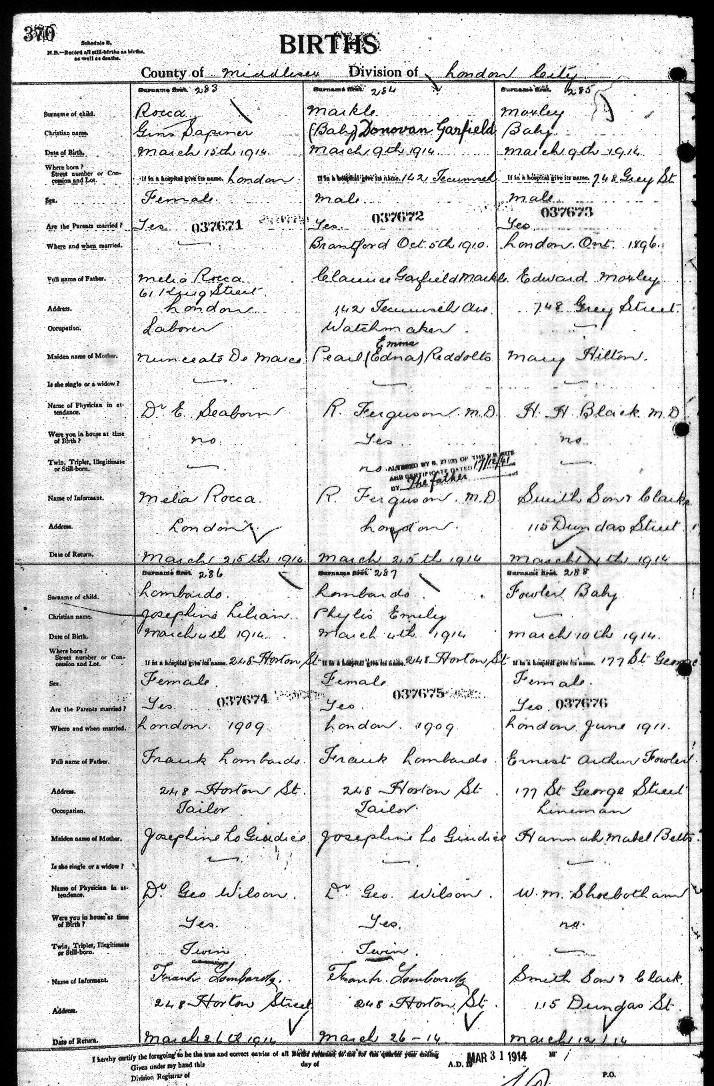 370
Schedule B.
N.B.—Record all still-births as births, as well as deaths.
BIRTHS
County of Middlesex Division of London City
Surname first. 283 Surname first. 284 Surname first. 285
Surname of child. Rocca Markle Morley
Christian name. (Baby) Donovan Garfield Baby
Date of Birth. March 15th 1914 March 9th 1914 March 9th 1914
Where born? Street number or Concession and Lot. If in a hospital give its name. London If in a hospital give its name. 142 Tecumseh If in a hospital give its name. 748 Grey St
Sex. Female male male
Are the Parents married? Yes 037671 Yes. 037672 Yes 037673
Where and when married. — Brantford Oct. 5th 1910. London Ont. 1896.
Full name of Father. Melia Rocca Clarence Garfield Markle Edward Morley
Address. 61 King Street London 142 Tecumseh Ave. 748 Grey Street.
Occupation. Laborer Watchmaker —
Emma
Maiden name of Mother. Pearl (Edna) Mary Hilton.
Is she single or a widow? — — —
Name of Physician in attendance. Dr E. Seaborn R. Ferguson M.D H. H Black M.D
Were you in house at time of Birth? no. Yes. no.
Twin, Triplet, Illegitimate or Still-born. — no. —
BY The father
Name of Informant. Melia Rocca. R. Ferguson M.D Smith Son & Clarke
Address. London London 115 Dundas Street
Date of Return. March 25th 1914 March 25th 1914 March 1914
Surname first. 286 Surname first. 287 Surname first. 288
Surname of child. Lombardo. Lombardo. Fowler Baby
Christian name. Josephine Lilian. Phylis Emily —
Date of Birth. March 4th 1914. March 4th 1914 March 10th 1914.
Where born? Street number or Concession and Lot. If in a hospital give its name. 248 Horton St If in a hospital give its name. 248 Horton St If in a hospital give its name. 177 St George
Sex. Female. Female Female.
Are the Parents married? Yes 037674 Yes 037675 Yes 037676
Where and when married. London 1909 London 1909 London June 1911.
Full name of Father. Frank Lombardo Frank Lombardo. Ernest Arthur Fowler
Address. 248 Horton St. 248 Horton St. 177 St George Street
Occupation. Tailor Tailor Lineman
Maiden name of Mother. Josephine Lo Giudice Josephine Lo Giudice Hannah Mabel Betts
Is she single or a widow? — — —
Name of Physician in attendance. Dr Geo Wilson. Dr Geo. Wilson W. M. Shoebotham
Were you in house at time of Birth? Yes. Yes. no.
Twin, Triplet, Illegitimate or Still-born. Twin Twin —
Name of Informant. Frank Frank Smith Son & Clark.
Address. 248 Horton Street 248 Horton St. 115 Dundas St.
Date of Return. March 26th 1914 March 26-14 March 12/14
I hereby certify the foregoing to be the true and correct entries of all Births returned to me for the quarter year ending
Given under my hand this day of A.D. 19 MAR 31 1914
Division Registrar of P.O.